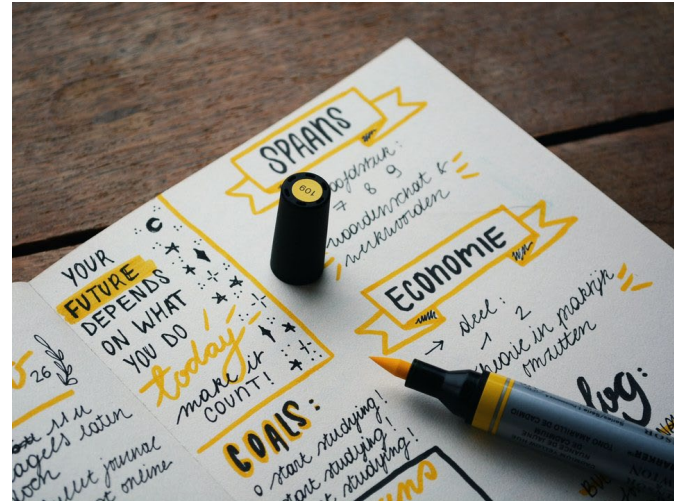 SPAANS
7 8 9
woordenschat &
werkwoorden
ECONOMIE
→ deel:
1 2
theorie in praktijk
omzetten
YOUR
FUTURE
DEPENDS
ON WHAT
YOU DO
today
make it
COUNT!
GOALS:
o start studying!
start studying!
start studying!
26
11 u
nagels laten
bullet journal
online
log:
109